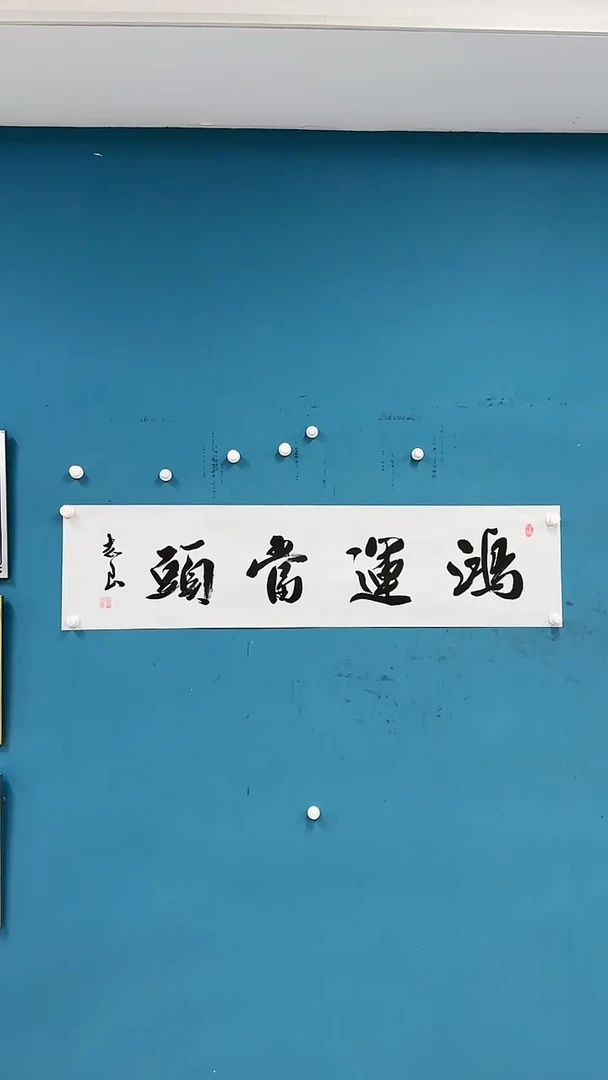 鴻運當頭
志良